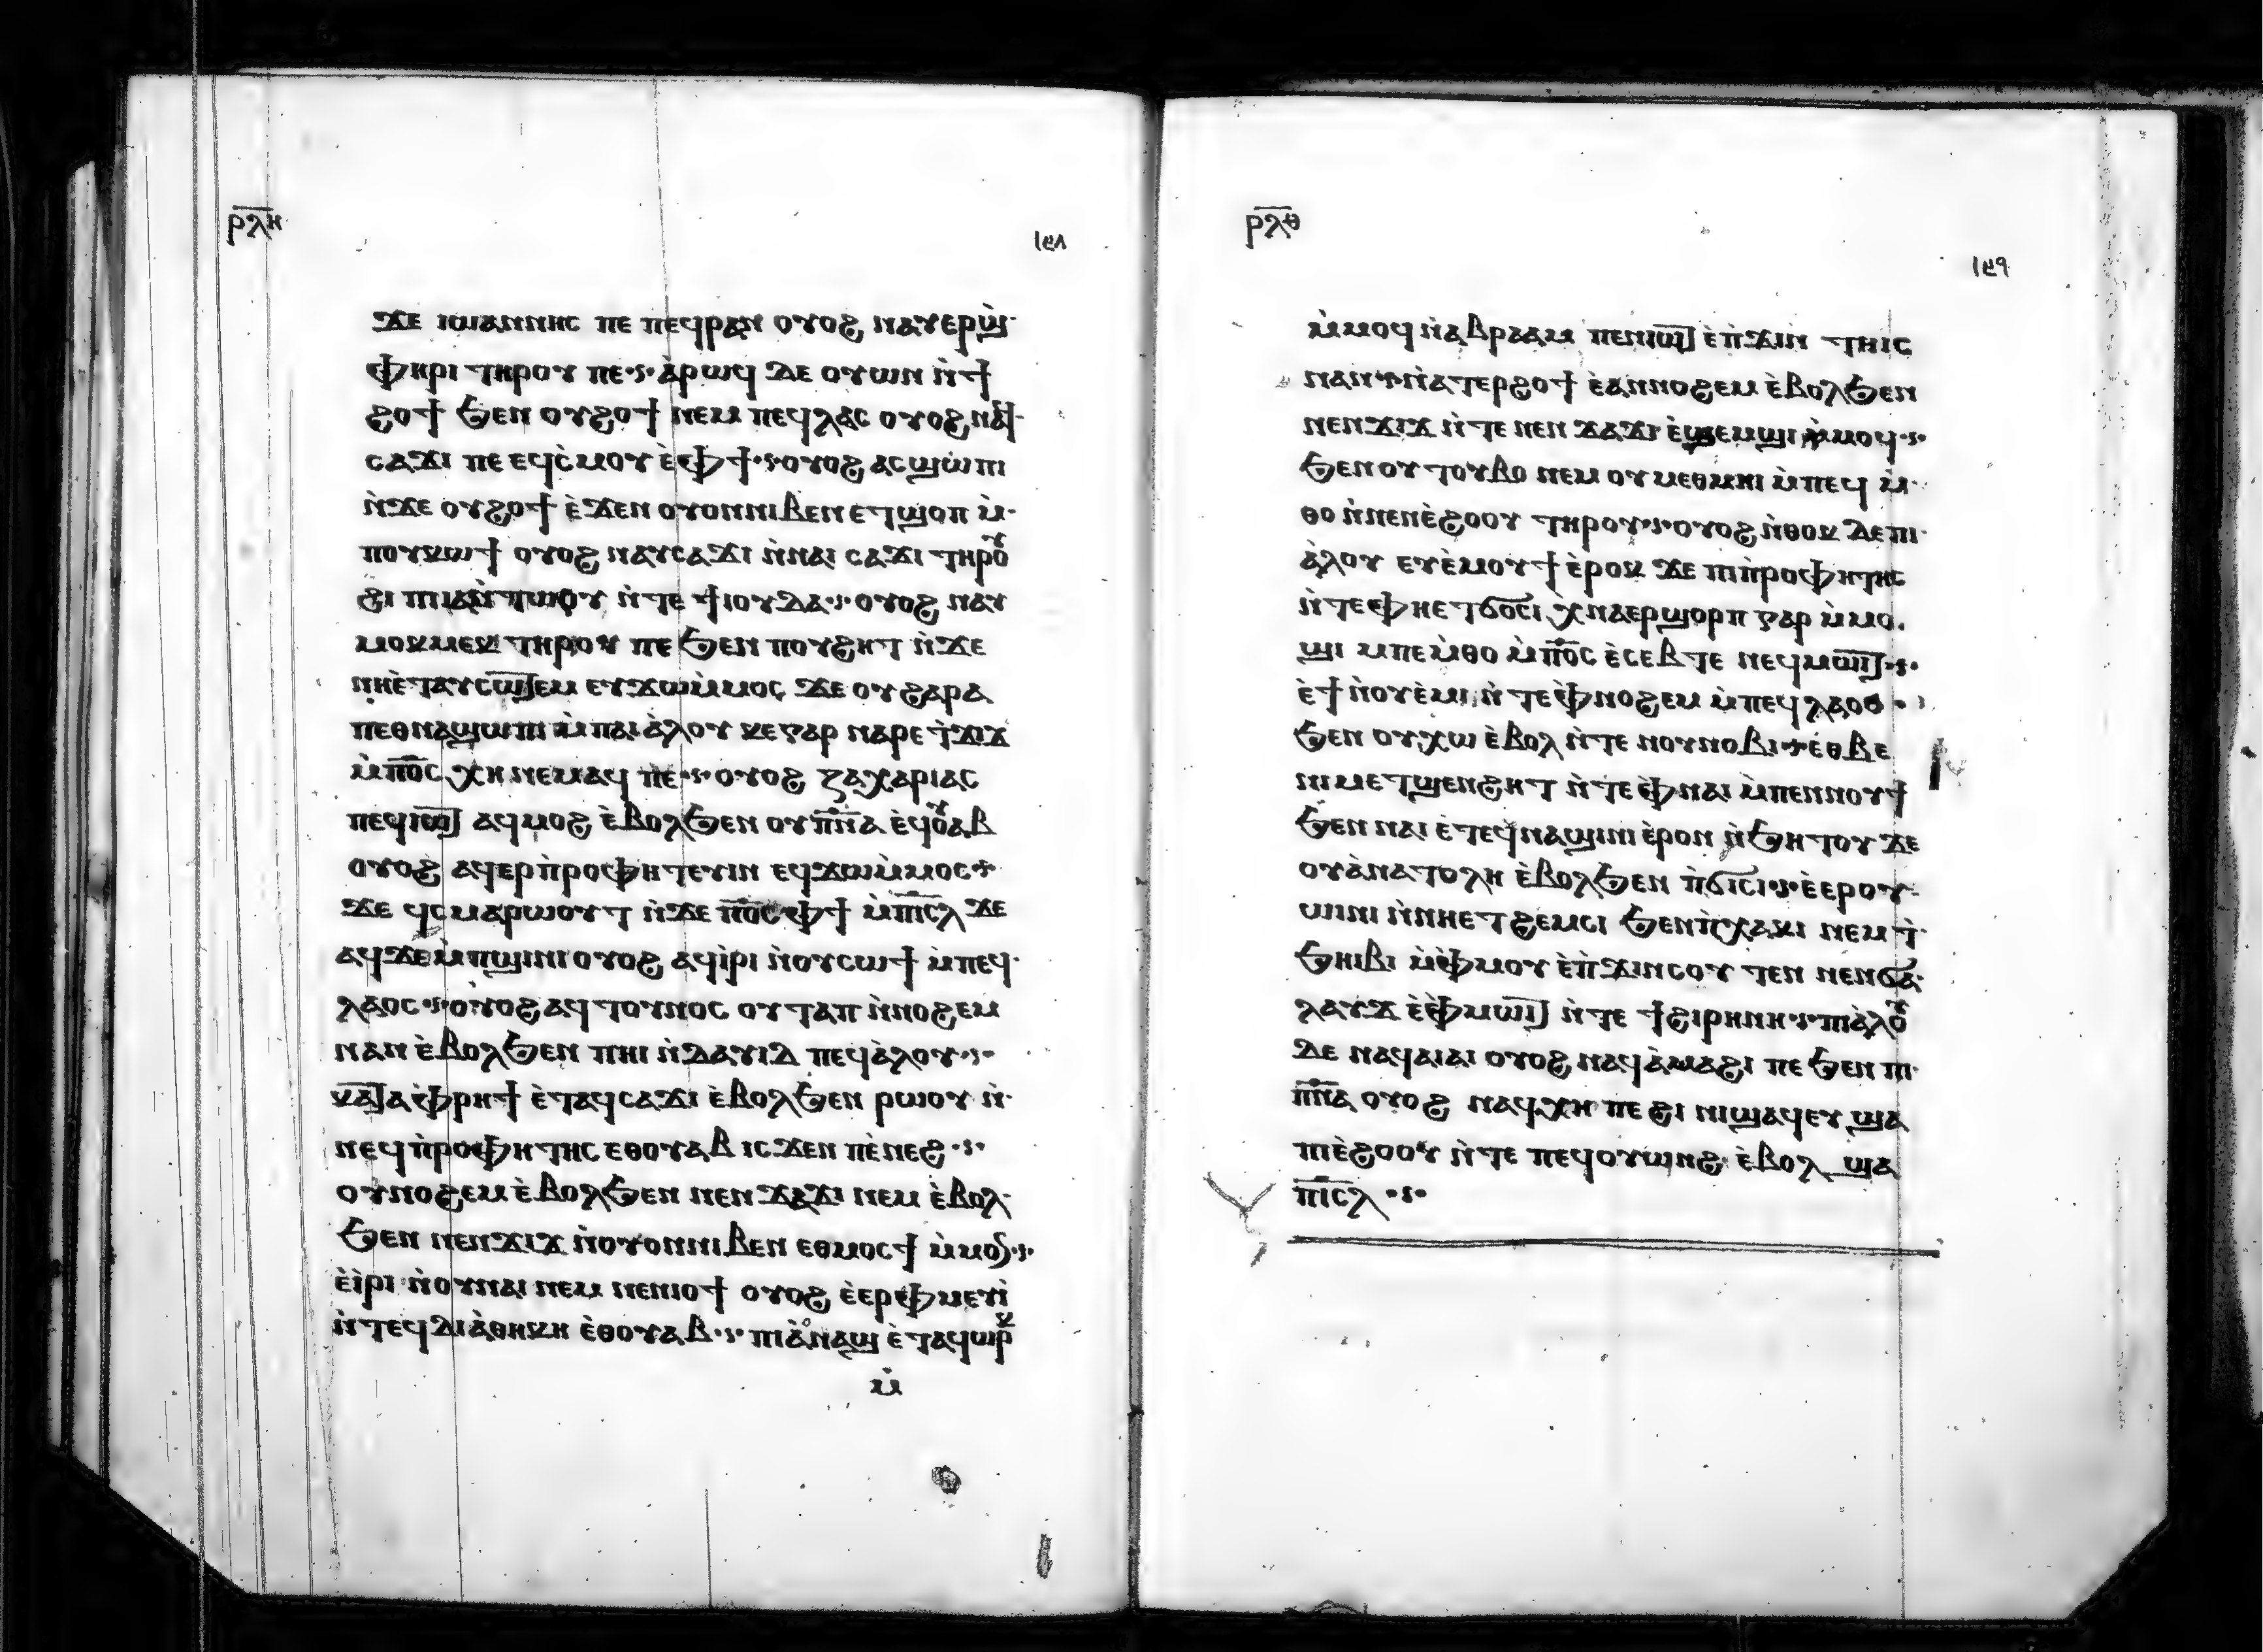 ⲣ̅ⲗ̅ⲏ̅
١٣٨
ϫⲉ ⲓⲱⲁⲛⲛⲏⲥ ⲡⲉ ⲡⲉϥⲣⲁⲛ ⲟⲩⲟϩ ⲛⲁⲩⲉⲣϣ̀
ⲫⲏⲣⲓ ⲧⲏⲣⲟⲩ ⲡⲉ ⲁ̀ⲣⲱϥ ⲇⲉ ⲟⲩⲱⲛ ⲛ̀ϯ
ϩⲟϯ ϧⲉⲛ ⲟⲩϩⲟϯ ⲛⲉⲙ ⲡⲉϥⲗⲁⲥ ⲟⲩⲟϩ ⲛⲁϥ
ⲥⲁϫⲓ ⲡⲉ ⲉϥⲥ̀ⲙⲟⲩ ⲉ̀ⲫϯ ⲟⲩⲟϩ ⲁⲥϣⲱⲡⲓ
ⲛ̀ϫⲉ ⲟⲩϩⲟϯ ⲉ̀ϫⲉⲛ ⲟⲩⲟⲛⲛⲓⲃⲉⲛ ⲉⲧϣⲟⲡ ⲙ̀
ⲡⲟⲩⲕⲱϯ ⲟⲩⲟϩ ⲛⲁⲩⲥⲁϫⲓ ⲛ̀ⲛⲁⲓ ⲥⲁϫⲓ ⲧⲏⲣⲟⲩ
ϩⲓ ⲡⲓⲁⲛⲧⲱⲟⲩ ⲛ̀ⲧⲉ ϯⲓⲟⲩⲇⲁ ⲟⲩⲟϩ ⲛⲁⲩ
ⲙⲟⲕⲙⲉⲕ ⲧⲏⲣⲟⲩ ⲡⲉ ϧⲉⲛ ⲡⲟⲩϩⲏⲧ ⲛ̀ϫⲉ
ⲛⲏⲉ̀ⲧⲁⲩⲥⲱⲧⲉⲙ ⲉⲩϫⲱⲙ̀ⲙⲟⲥ ϫⲉ ⲟⲩϩⲁⲣⲁ
ⲡⲉⲑⲛⲁϣⲱⲡⲓ ⲙ̀ⲡⲁⲓⲁ̀ⲗⲟⲩ ⲕⲉⲅⲁⲣ ⲛⲁⲣⲉ ⲧ̀ϫⲓϫ
ⲙ̀ⲡⲟ̅ⲥ̅ ⲭⲏ ⲛⲉⲙⲁϥ ⲡⲉ ⲟⲩⲟϩ ⲍⲁⲭⲁⲣⲓⲁⲥ
ⲡⲉϥⲓⲱⲧ ⲁϥⲙⲟϩ ⲉ̀ⲃⲟⲗϧⲉⲛ ⲟⲩⲡ̅ⲛ̅ⲁ ⲉϥⲟⲩⲁⲃ
ⲟⲩⲟϩ ⲁϥⲉⲣⲡ̀ⲣⲟⲫⲏⲧⲉⲩⲓⲛ ⲉϥϫⲱⲙ̀ⲙⲟⲥ
ϫⲉ ϥⲥⲙⲁⲣⲱⲟⲩⲧ ⲛ̀ϫⲉ ⲡⲟ̅ⲥ̅ ⲫϯ ⲙ̀ⲡⲓ̅ⲥ̅ⲗ ϫⲉ
ⲁϥϫⲉⲙ̀ⲡϣⲓⲛⲓ ⲟⲩⲟϩ ⲁϥⲓ̀ⲣⲓ ⲛ̀ⲟⲩⲥⲱϯ ⲙ̀ⲡⲉϥ
ⲗⲁⲟⲥ ⲟⲩⲟϩ ⲁϥⲧⲟⲩⲛⲟⲥ ⲟⲩⲧⲁⲡ ⲛ̀ⲛⲟϩⲉⲙ
ⲛⲁⲛ ⲉ̀ⲃⲟⲗϧⲉⲛ ⲡⲏⲓ ⲛ̀ⲇⲁⲩⲓⲇ ⲡⲉϥⲁ̀ⲗⲟⲩ
ⲕⲁⲧⲁ ⲫ̀ⲣⲏϯ ⲉ̀ⲧⲁϥⲥⲁϫⲓ ⲉ̀ⲃⲟⲗϧⲉⲛ ⲣⲱⲟⲩ ⲛ̀
ⲛⲉϥⲡ̀ⲣⲟⲫⲏⲧⲏⲥ ⲉⲑⲟⲩⲁⲃ ⲓⲥϫⲉⲛ ⲡⲉ̀ⲛⲉϩ
ⲟⲩⲛⲟϩⲉⲙ ⲉ̀ⲃⲟⲗϧⲉⲛ ⲛⲉⲛϫⲁϫⲓ ⲛⲉⲙ ⲉ̀ⲃⲟⲗ
ϧⲉⲛ ⲛⲉⲛϫⲓϫ ⲛ̀ⲟⲩⲟⲛⲛⲓⲃⲉⲛ ⲉⲑⲙⲟⲥϯ ⲙ̀ⲙⲟⲛ
ⲉ̀ⲓ̀ⲣⲓ ⲛ̀ⲟⲩⲛⲁⲓ ⲛⲉⲙ ⲛⲉⲛⲓⲟϯ ⲟⲩⲟϩ ⲉ̀ⲉⲣⲫ̀ⲙⲉⲩⲓ̀
ⲛ̀ⲧⲉϥⲇⲓⲁ̀ⲑⲏⲕⲏ ⲉ̀ⲑⲟⲩⲁⲃ ⲡⲓⲁ̀ⲛⲁϣ ⲉ̀ⲧⲁϥⲱⲣⲕ
ⲙ̀
ⲣ̅ⲗ̅ⲑ̅
١٣٩
ⲙ̀ⲙⲟϥ ⲛ̀ⲁⲃⲣⲁⲁⲙ ⲡⲉⲛⲓⲱⲧ ⲉ̀ⲡ̀ϫⲓⲛ ⲧⲏⲓⲥ
ⲛⲁⲛ ⲛ̀ⲁⲧⲉⲣϩⲟϯ ⲉ̀ⲁⲛⲛⲟϩⲉⲙ ⲉ̀ⲃⲟⲗϧⲉⲛ
ⲛⲉⲛϫⲓϫ ⲛ̀ⲧⲉ ⲛⲉⲛ ϫⲁϫⲓ ⲉ̀ϣⲉⲙϣⲓ ⲙ̀ⲙⲟϥ
ϧⲉⲛ ⲟⲩⲧⲟⲩⲃⲟ ⲛⲉⲙ ⲟⲩⲙⲉⲑⲙⲏⲓ ⲙ̀ⲡⲉϥ ⲙ̀
ⲑⲟ ⲛ̀ⲛⲉⲛⲉ̀ϩⲟⲟⲩ ⲧⲏⲣⲟⲩ ⲟⲩⲟϩ ⲛ̀ⲑⲟⲕ ⲇⲉ ⲡⲓ
ⲁ̀ⲗⲟⲩ ⲉⲩⲉ̀ⲙⲟⲩϯ ⲉ̀ⲣⲟⲕ ϫⲉ ⲡⲓⲡ̀ⲣⲟⲫⲏⲧⲏⲥ
ⲛ̀ⲧⲉⲫⲏⲉⲧϭⲟⲥⲓ ⲭⲛⲁⲉⲣϣⲟⲣⲡ ⲅⲁⲣ ⲙ̀ⲙⲟ
ϣⲓ ⲙⲡⲉⲙ̀ⲑⲟ ⲙ̀ⲡⲟ̅ⲥ̅ ⲉ̀ⲥⲉⲃⲧⲉ ⲛⲉϥⲙⲱⲓⲧ
ⲉ̀ϯ ⲛ̀ⲟⲩⲉ̀ⲙⲓ ⲛ̀ⲧⲉⲫ̀ⲛⲟϩⲉⲙ ⲙ̀ⲡⲉϥⲗⲁⲟⲥ
ϧⲉⲛ ⲟⲩⲭⲱ ⲉ̀ⲃⲟⲗ ⲛ̀ⲧⲉ ⲛⲟⲩⲛⲟⲃⲓ ⲉ̀ⲑⲃⲉ
ⲡⲓⲙⲉⲧϣⲉⲛϩⲏⲧ ⲛ̀ⲧⲉ ⲫ̀ⲛⲁⲓ ⲙ̀ⲡⲉⲛⲛⲟⲩϯ
ϧⲉⲛ ⲛⲁⲓ ⲉ̀ⲧⲉϥⲛⲁϣⲓⲛⲓ ⲉ̀ⲣⲟⲛ ⲛ̀ϧⲏⲧⲟⲩ ϫⲉ
ⲟⲩⲁ̀ⲛⲁⲧⲟⲗⲏ ⲉ̀ⲃⲟⲗϧⲉⲛ ⲡ̀ϭⲓⲥⲓ ⲉ̀ⲉⲣⲟⲩ
ⲱⲓⲛⲓ ⲛ̀ⲛⲏⲉⲧϩⲉⲙⲥⲓ ϧⲉⲛⲡ̀ⲭⲁⲕⲓ ⲛⲉⲙ ⲧ̀
ϧⲏⲓⲃⲓ ⲙ̀ⲫ̀ⲙⲟⲩ ⲉ̀ⲡ̀ϫⲓⲛⲥⲟⲩⲧⲉⲛ ⲛⲉⲛϭⲁ
ⲗⲁⲩϫ ⲉ̀ⲫ̀ⲙⲱⲓⲧ ⲛ̀ⲧⲉ ϯϩⲓⲣⲏⲛⲏ ⲡⲓⲁ̀ⲗⲟⲩ
ⲇⲉ ⲛⲁϥⲁⲓⲁⲓ ⲟⲩⲟϩ ⲛⲁϥⲁ̀ⲙⲁϩⲓ ⲡⲉ ϧⲉⲛ ⲡⲓ
ⲡ̅ⲛ̅ⲁ ⲟⲩⲟϩ ⲛⲁϥⲭⲏ ⲡⲉ ϩⲓ ⲛⲓϣⲁϥⲉⲩ ϣⲁ
ⲡⲓⲉ̀ϩⲟⲟⲩ ⲛ̀ⲧⲉ ⲡⲉϥⲟⲩⲱⲛϩ ⲉ̀ⲃⲟⲗ ϣⲁ
ⲡⲓ̅ⲥ̅ⲗ